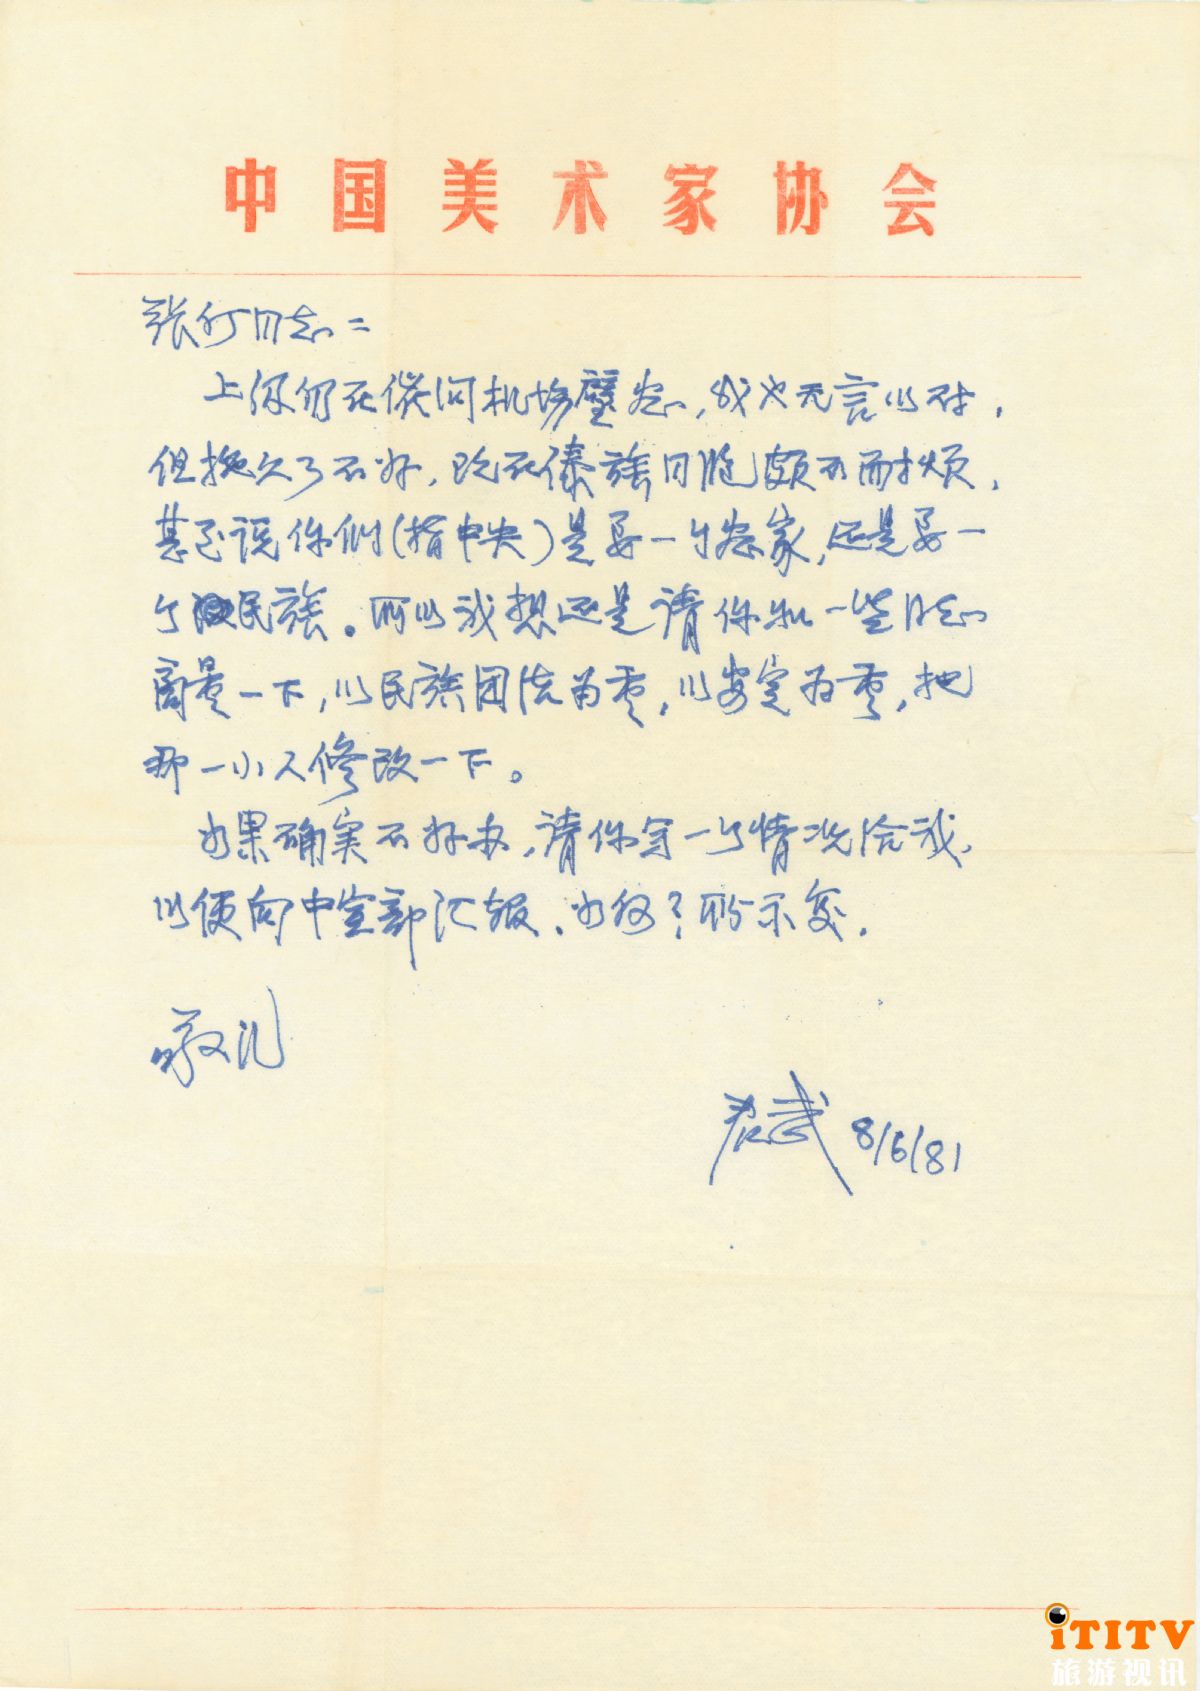 中国美术家协会
张仃同志：
上级仍在催问机场壁画，我也无言以对，
但拖久了不好，现在傣族同胞颇不耐烦，
甚至说你们（指中央）是要一个画家，还是要一
个民族。所以我想还是请你和一些同志
商量一下，以民族团结为重，以安定为重，把
那一小人修改一下。
如果确实不好办，请你写一个情况给我，
以便向中宣部汇报。如何？盼示复。
敬礼
君武 8/6/81
iTiTV
旅游视讯